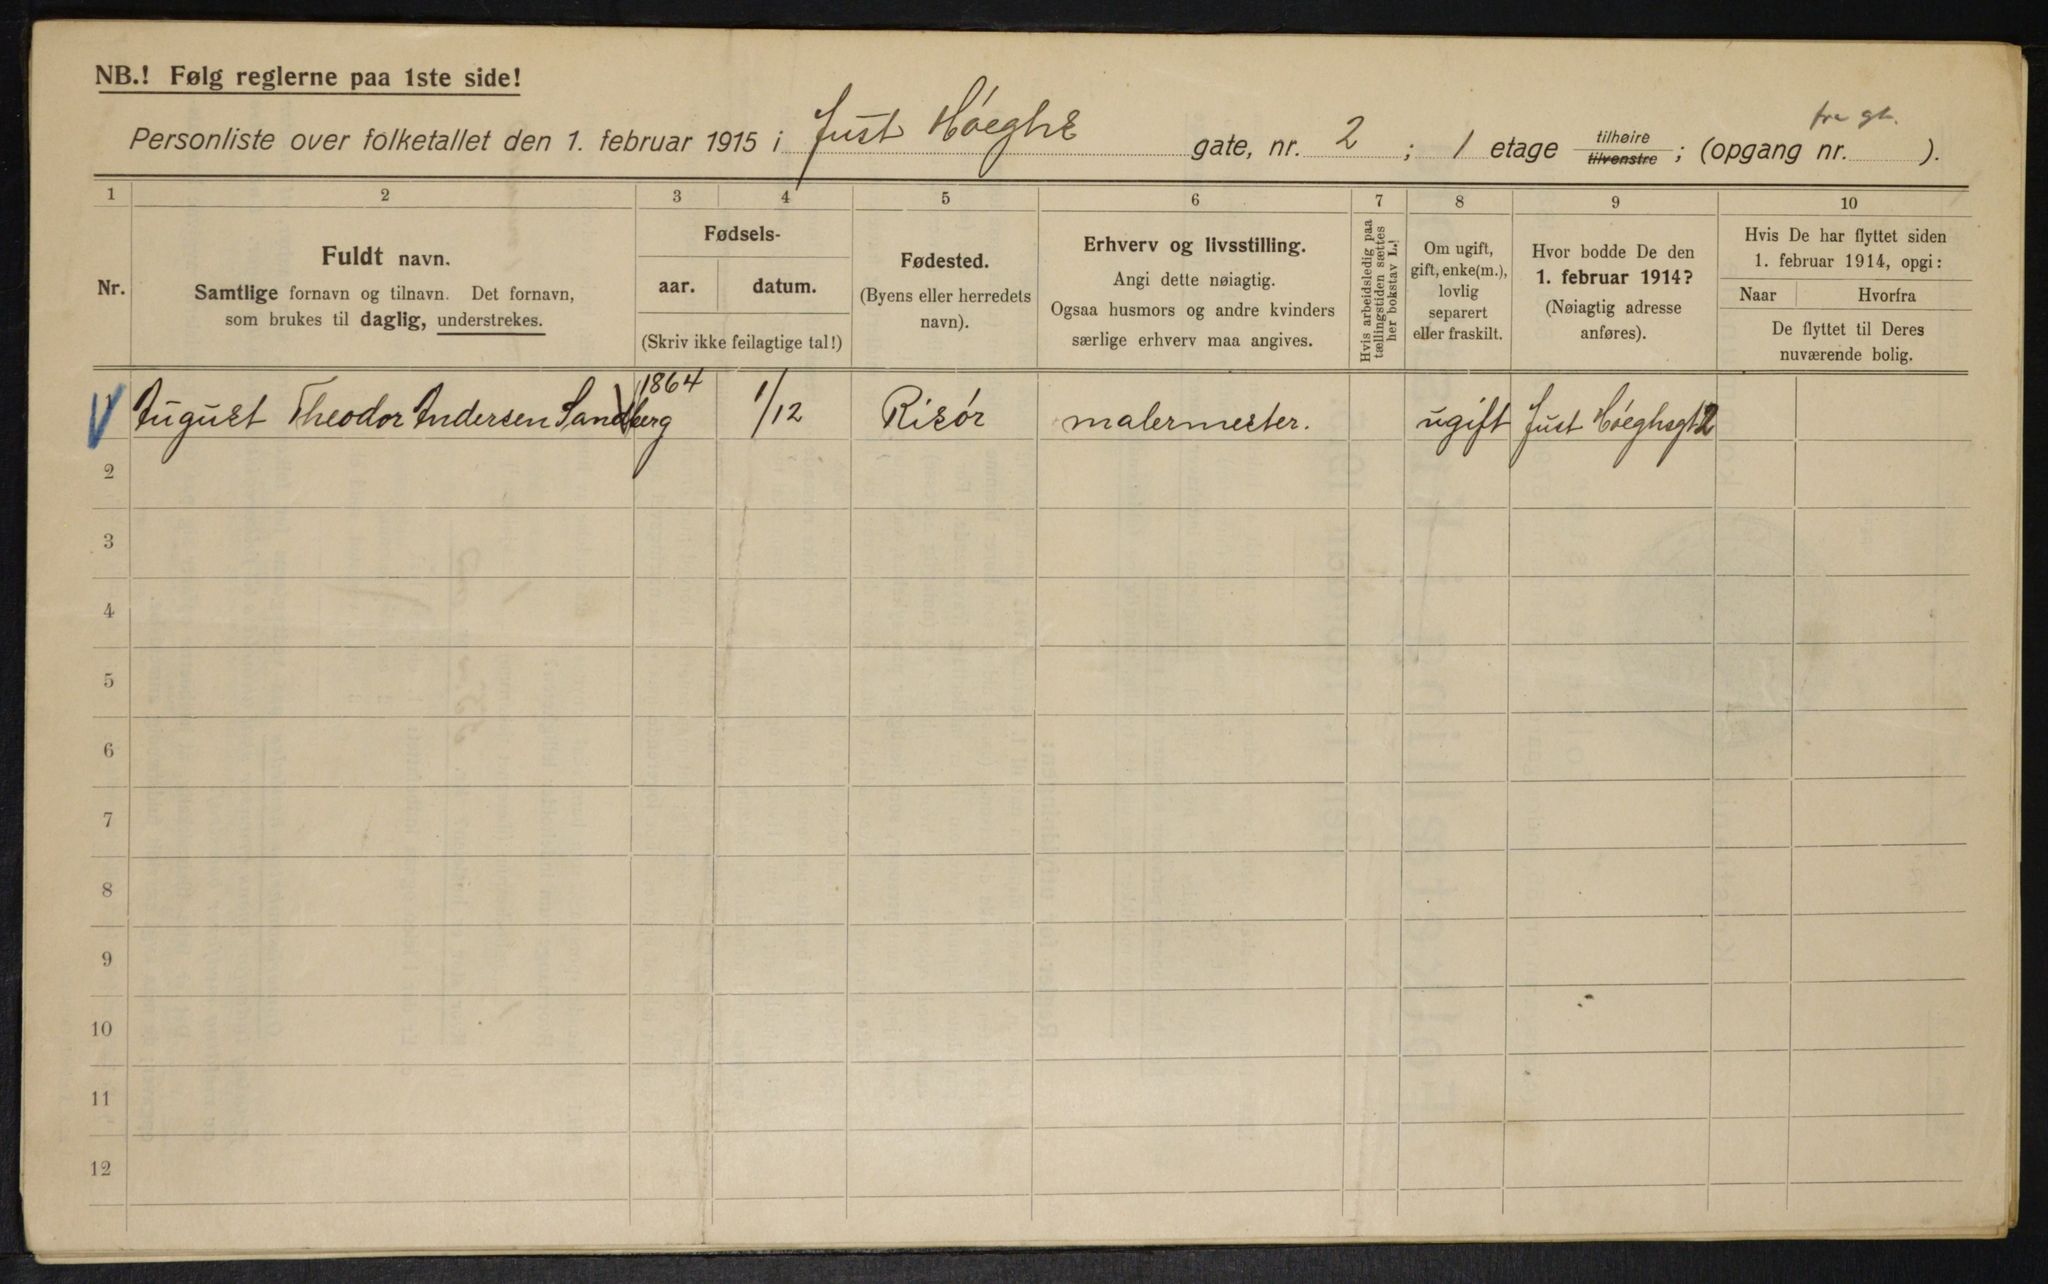 NB.! Følg reglerne paa 1ste side!
fra gt.
Personliste over folketallet den 1. februar 1915 i Just Høeghs gate, nr. 2 ; 1 etage tilhøire tilvenstre ; (opgang nr. ).
1 2 3 4 5 6 7 8 9 10
Nr.
Fuldt navn.
Samtlige fornavn og tilnavn. Det fornavn,
som brukes til daglig, understrekes.
Fødsels-
aar. datum.
(Skriv ikke feilagtige tal!)
Fødested.
(Byens eller herredets
navn).
Erhverv og livsstilling.
Angi dette nøiagtig.
Ogsaa husmors og andre kvinders
særlige erhverv maa angives.
Hvis arbeidsledig paa
tællingstiden sættes
her bokstav L.!
Om ugift,
gift, enke(m.),
lovlig
separert
eller fraskilt.
Hvor bodde De den
1. februar 1914?
(Nøiagtig adresse
anføres).
Hvis De har flyttet siden
1. februar 1914, opgi:
Naar Hvorfra
De flyttet til Deres
nuværende bolig.
1 August Theodor Andersen Sandberg 1864 1/12 Risør malermester. ugift Just Høeghsgt 2
2
3
4
5
6
7
8
9
10
11
12